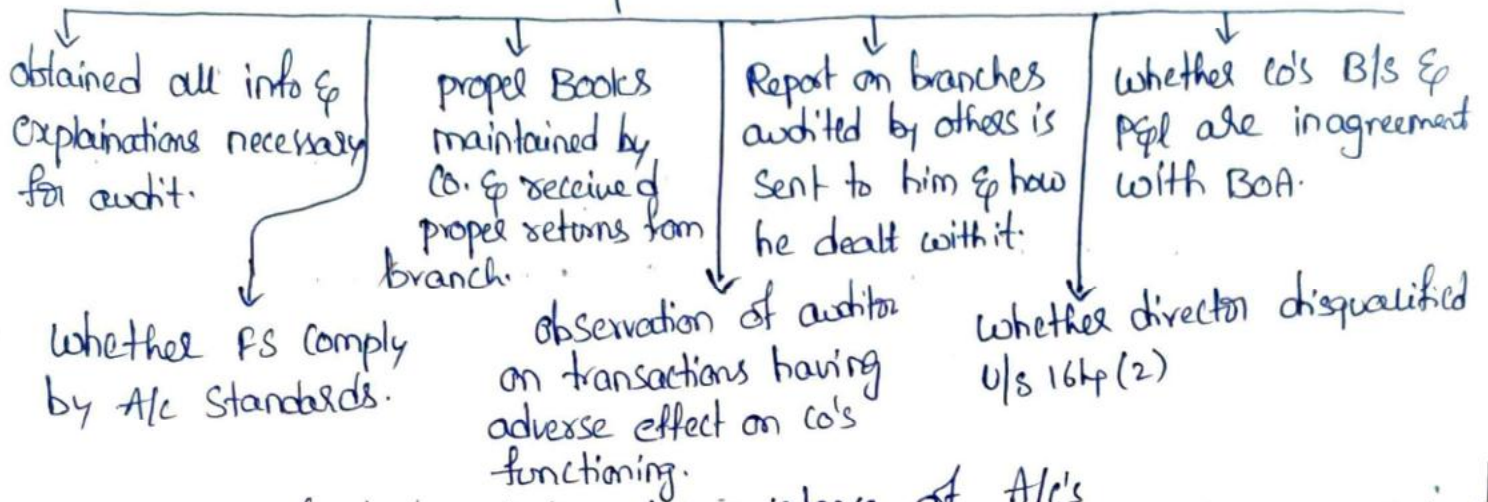 obtained all info &
explainations necessary
for audit.
proper Books
maintained by
Co. & received
proper returns from
branch.
Report on branches
audited by others is
sent to him & how
he dealt with it.
whether co's B/S &
P&L are inagreement
with BOA.
whether FS comply
by A/c Standards.
observation of auditor
on transactions having
adverse effect on co's
functioning.
whether director disqualified
U/S 164(2)
of A/c's